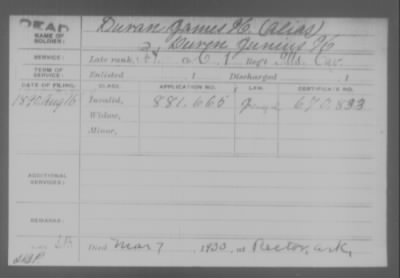 DEAD
NAME OF SOLDIER: Duran James H. (alias)
Duren Junius H
SERVICE: Late rank, Co. C, 1 Reg't Ills. Cav.
TERM OF SERVICE: Enlisted , 1 Discharged , 1
DATE OF FILING. CLASS. APPLICATION NO. LAW. CERTIFICATE NO.
1890 Aug 16 Invalid, 881.665 670.833
Widow,
Minor,
ADDITIONAL SERVICES:
REMARKS:
Died Mar 7 1933, at Rector, Ark,